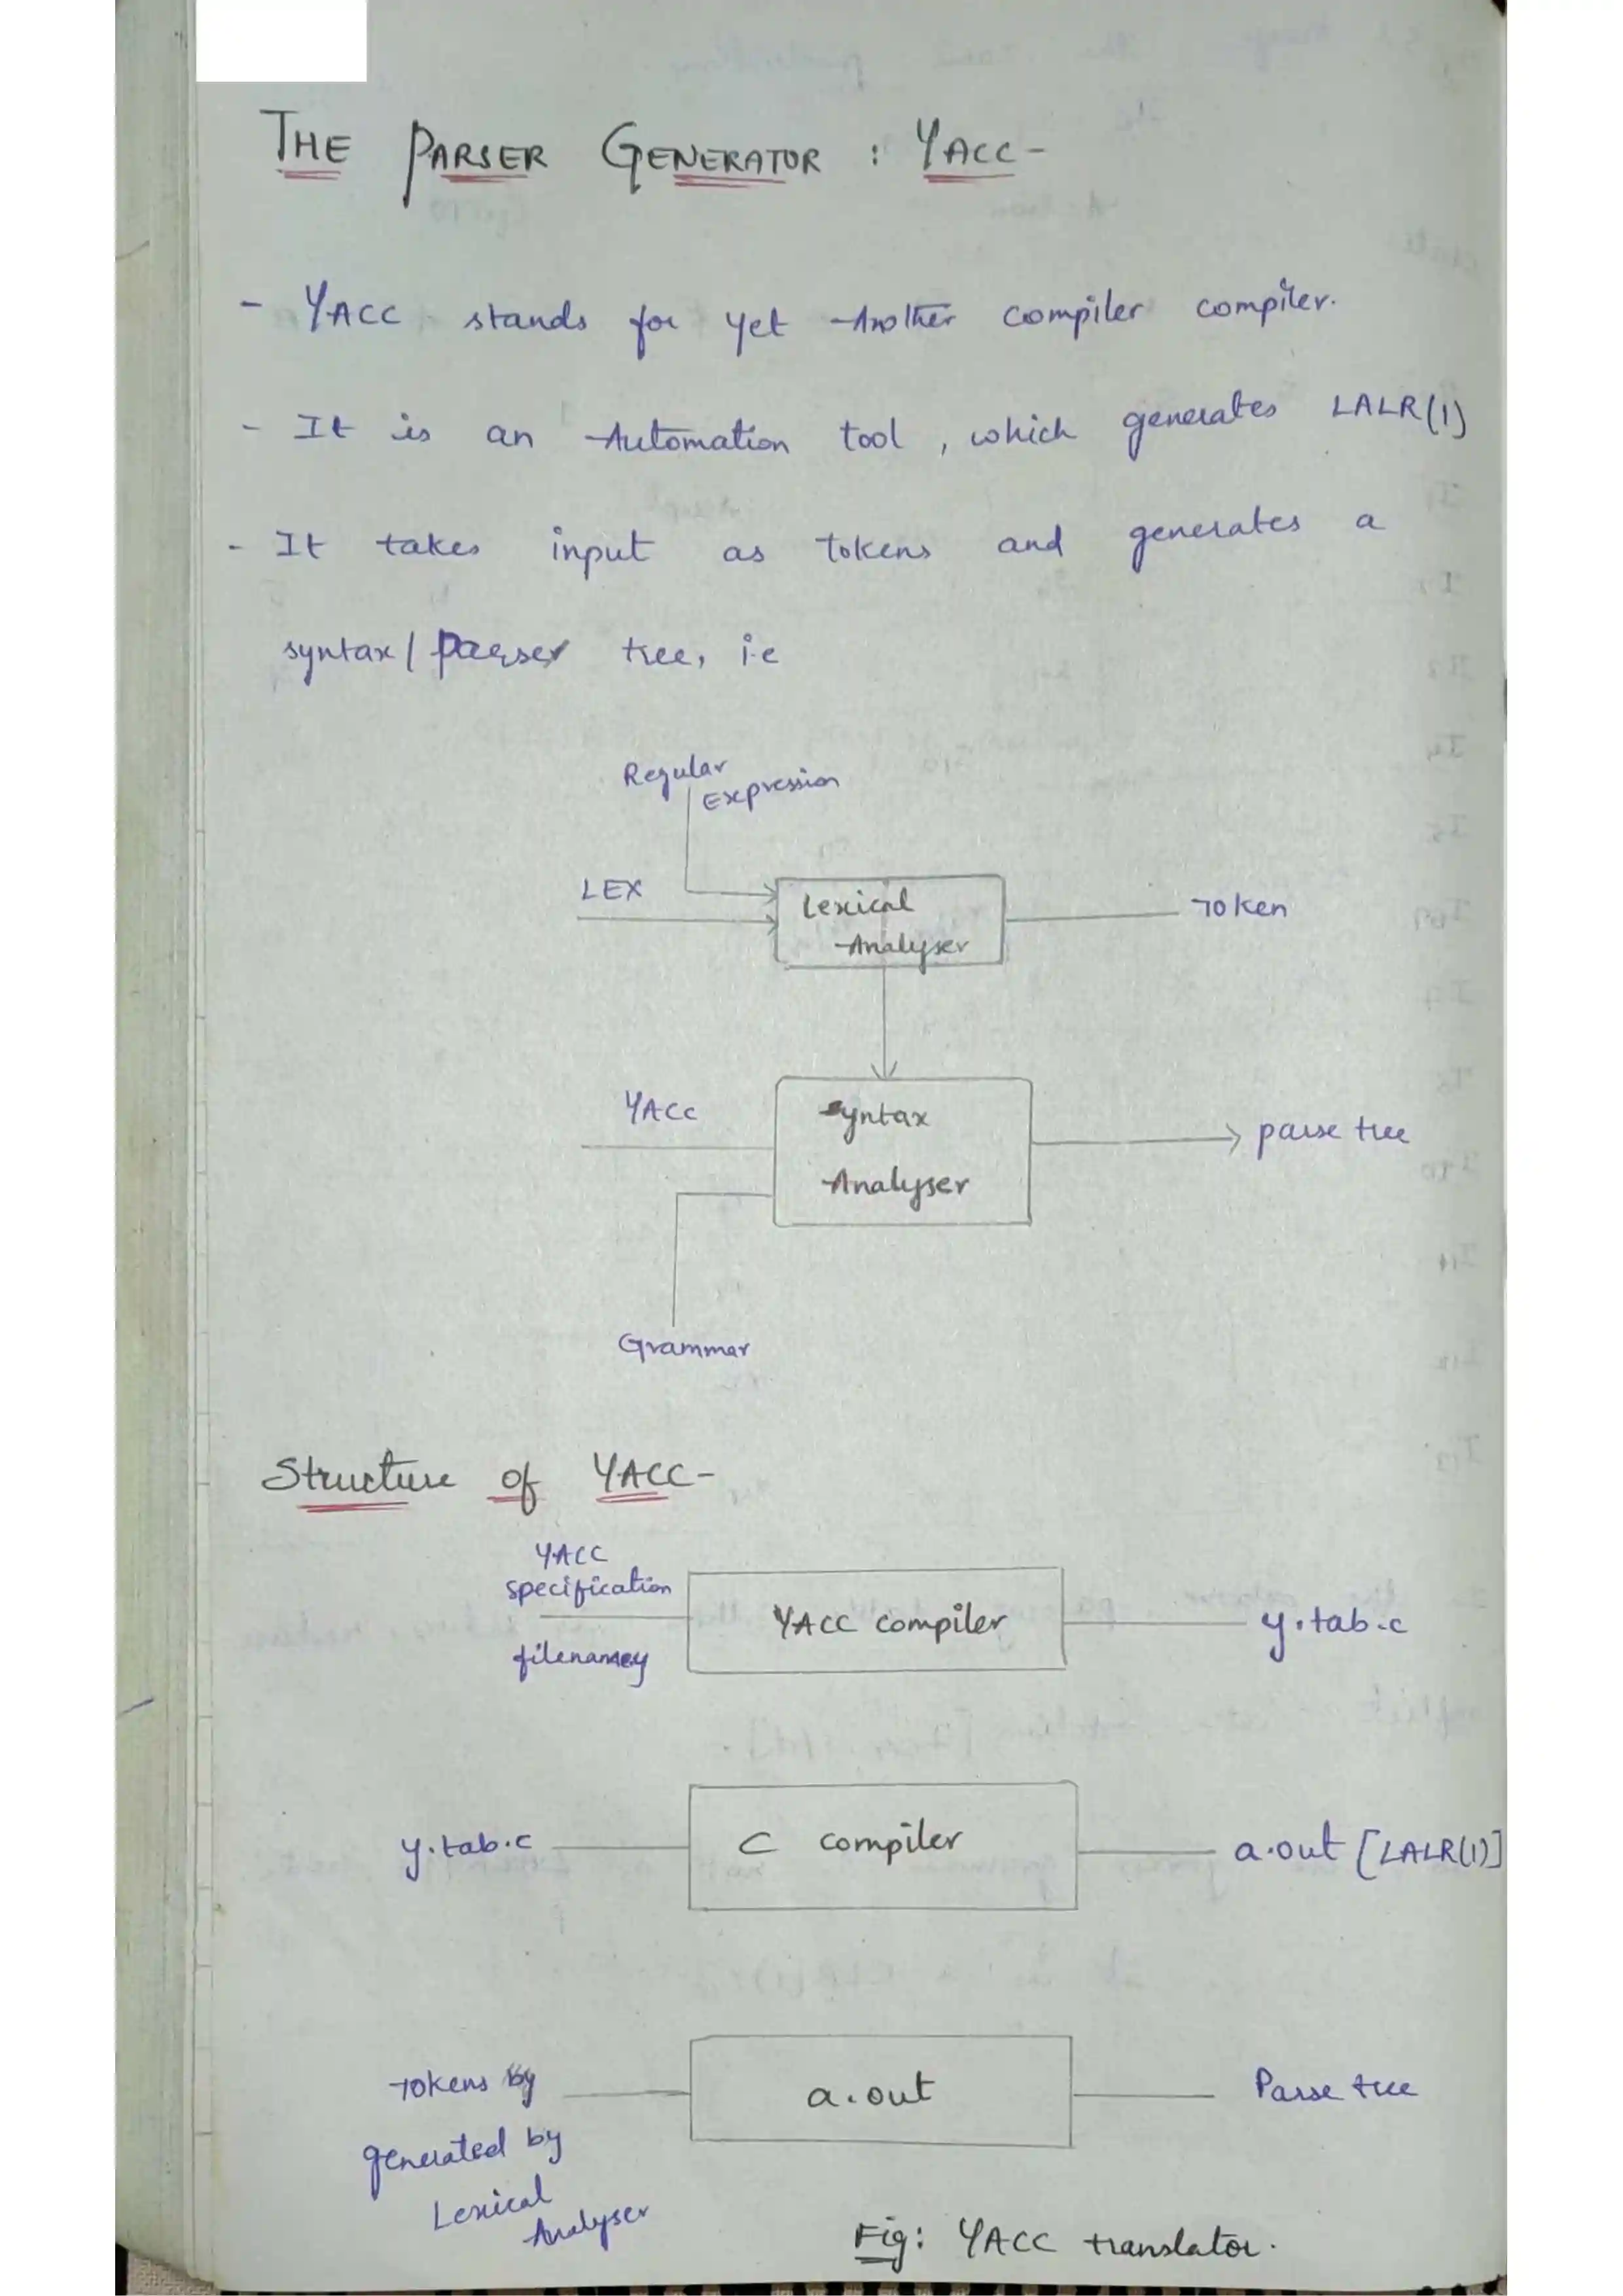 THE PARSER GENERATOR : YACC-
- YACC stands for yet Another compiler compiler.
- It is an Automation tool , which generates LALR(1)
- It takes input as tokens and generates a
syntax / Parser tree, i.e
Regular
Expression
LEX
Lexical
Analyser
Token
YACC
Syntax
Analyser
parse tree
Grammar
Structure of YACC-
YACC
specification
filename.y
YACC compiler
y.tab.c
y.tab.c
C compiler
a.out [LALR(1)]
Tokens by
generated by
Lexical
Analyser
a.out
Parse tree
Fig: YACC translator.